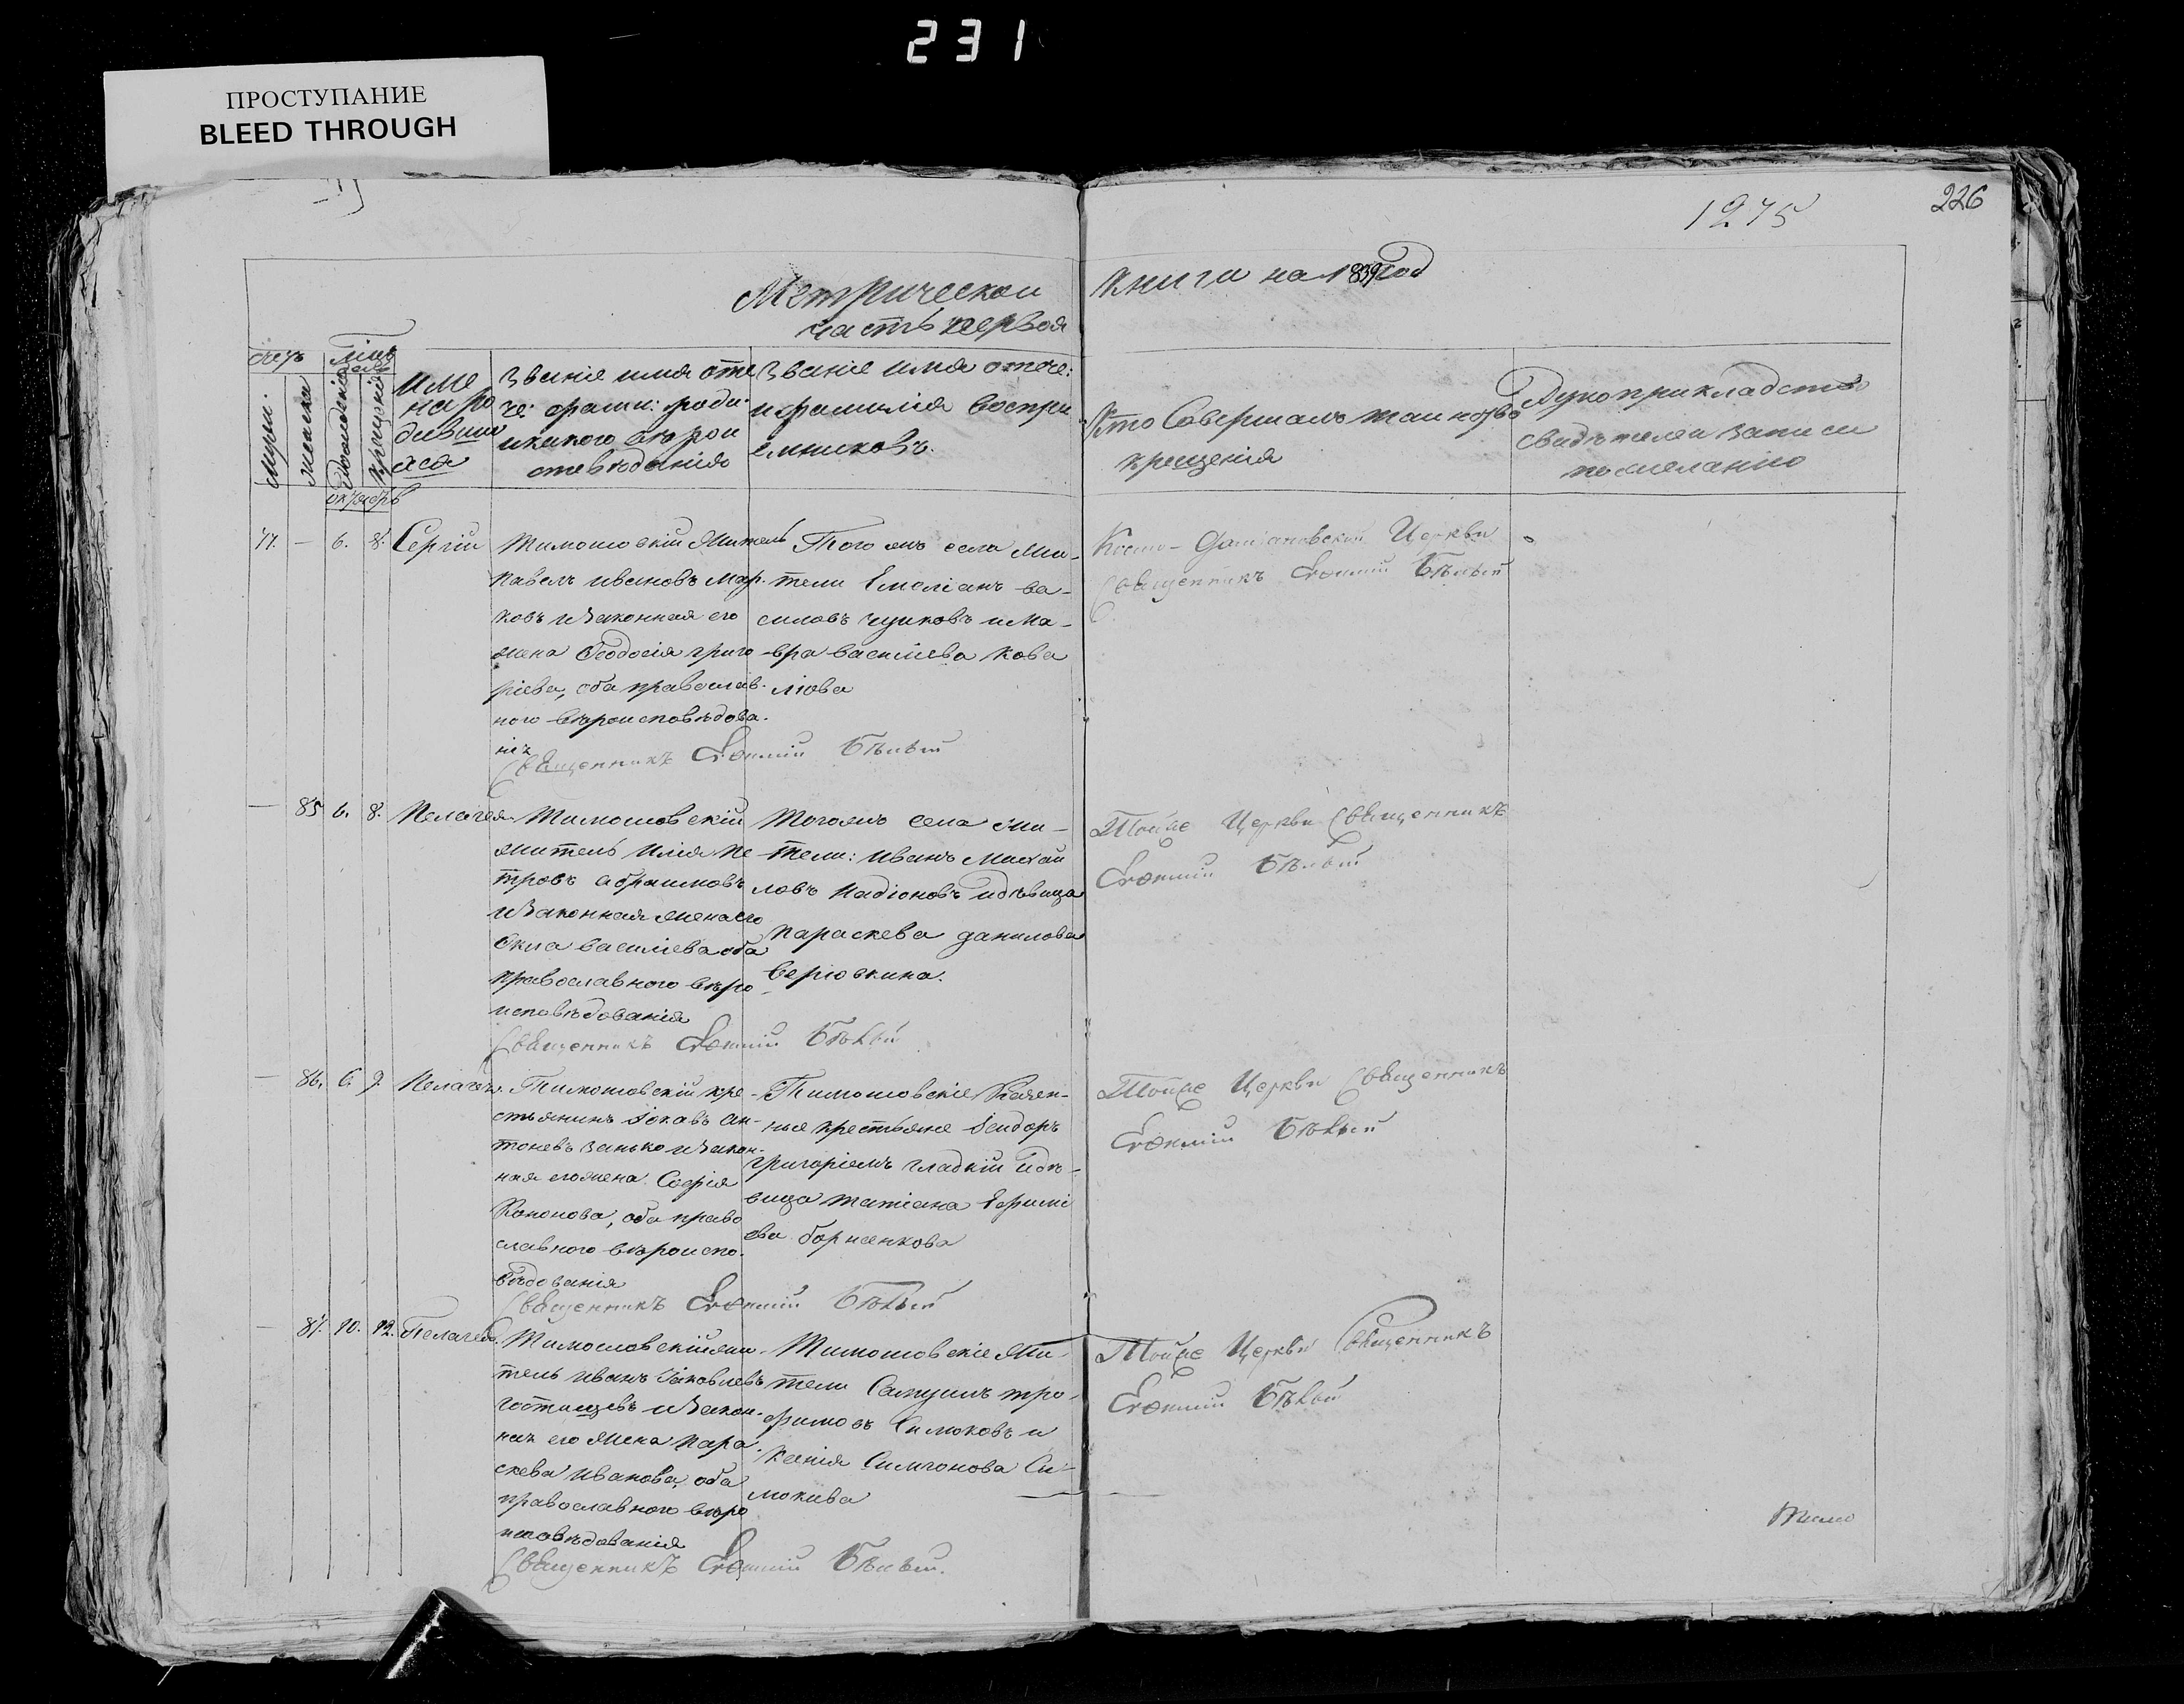 231
ПРОСТУПАНИЕ
BLEED THROUGH
1275
226
Метрической
часть первая
книги на 1839 год
счетъ
Мѣсяцъ
муж.
женска
рожденіе
крещеніе
Име
на ро
дивши
хся
Званіе имя отe
че: фами: роди:
и какого вѣрои
споведанія
Званіе имя отече:
и фамилія воспри
емниковъ.
Кто Совершалъ таинство
крещенія
Рукоприкладство
свидѣтелей записи
по желанію
октябрь
77. — 6. 8. Сергій
Тимошовскій житель
Павелъ Ивановъ Мар-
ковъ и Законная его
жена Феодосія Григо
ріева, оба православ-
ного вѣроисповѣдова-
нія
Священникъ Евфимій Бѣлый
Того жъ села жи-
тели Емеліанъ Ва-
силовъ чушковъ и Ма-
вра Василіева Кова
ліова
Космо-Даміановской Церкви
Священникъ Евфимій Бѣлый
— 85 6. 8. Пелагея
Тимошовскій
житель Илія Пе
тровъ Абрамовъ
и Законная жена его
Фкла Василіева оба
православного вѣро
исповѣдованія
Священникъ Евфимій Бѣлый
Того жъ села жи-
тели: Иванъ Михаи
ловъ Надіоновъ и дѣвица
Параскева Данилова
Верювкина.
Той же Церкви Священникъ
Евфимій Бѣлый
— 86. 6. 9. Пелагея
Тимошовскій кре-
стьянинъ Іоковъ Ан-
тоновъ Занько и Закон-
ная его жена София
Кононова, оба право
славного вѣроиспо-
вѣдованія
Священникъ Евфимій Бѣлый
Тимошовскіе Казен-
ные крестьяне Ісидоръ
Григоріевъ Гладкій и дѣ-
вица Татіана Ефимі
ева Борисенкова
Той же Церкви Священникъ
Евфимій Бѣлый
— 87. 10. 12. Пелагея
Тимошовскій жи-
тель Иванъ Іаковлевъ
Гостищевъ и Закон-
ная его жена Пара-
скева Иванова, оба
православного вѣро
исповѣдованія
Священникъ Евфимій Бѣлый.
Тимошовскіе жи-
тели Самуилъ Тро-
фимовъ Симоковъ и
Ксенія Симионова Си-
мокова
Той же Церкви Священникъ
Евфимій Бѣлый